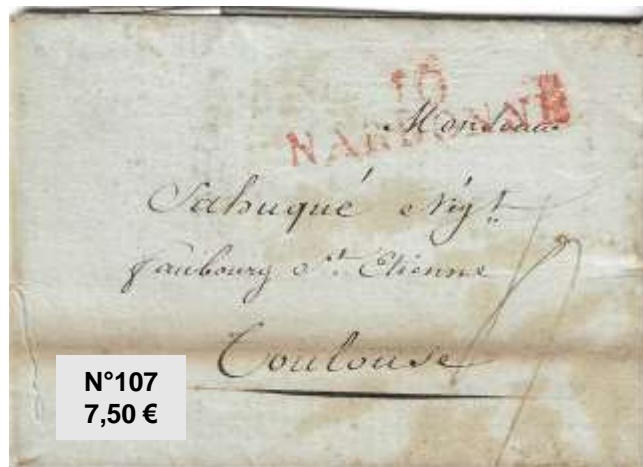 10
NARBONNE
Monsieur
Sabuqué Nég.t
faubourg St. Etienne
Toulouse
N°107
7,50 €